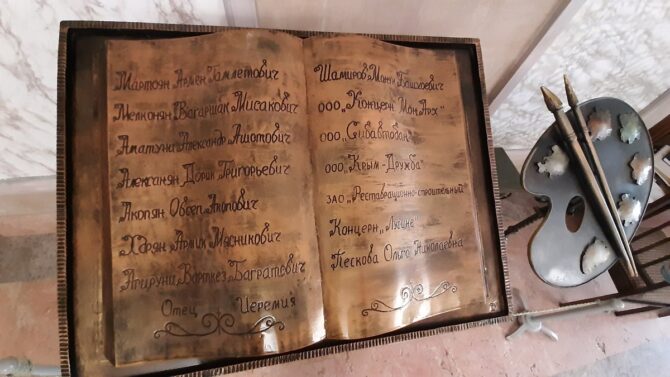 Мартоян Армен Гамлетович
Мелконян Вагаршак Мисакович
Аматуни Александр Ашотович
Алексанян Дорик Григорьевич
Акопян Овсеп Акопович
Хдрян Армик Мясникович
Агируни Варткез Багратович
Отец Иеремия
Шамиров Башоевич
ООО „Концерн МонАрх"
ООО „Сивавтодон"
ООО „Крым-Дружба"
ЗАО „Реставрационно-строительный"
Концерн „Людне"
Пескова Ольга Николаевна